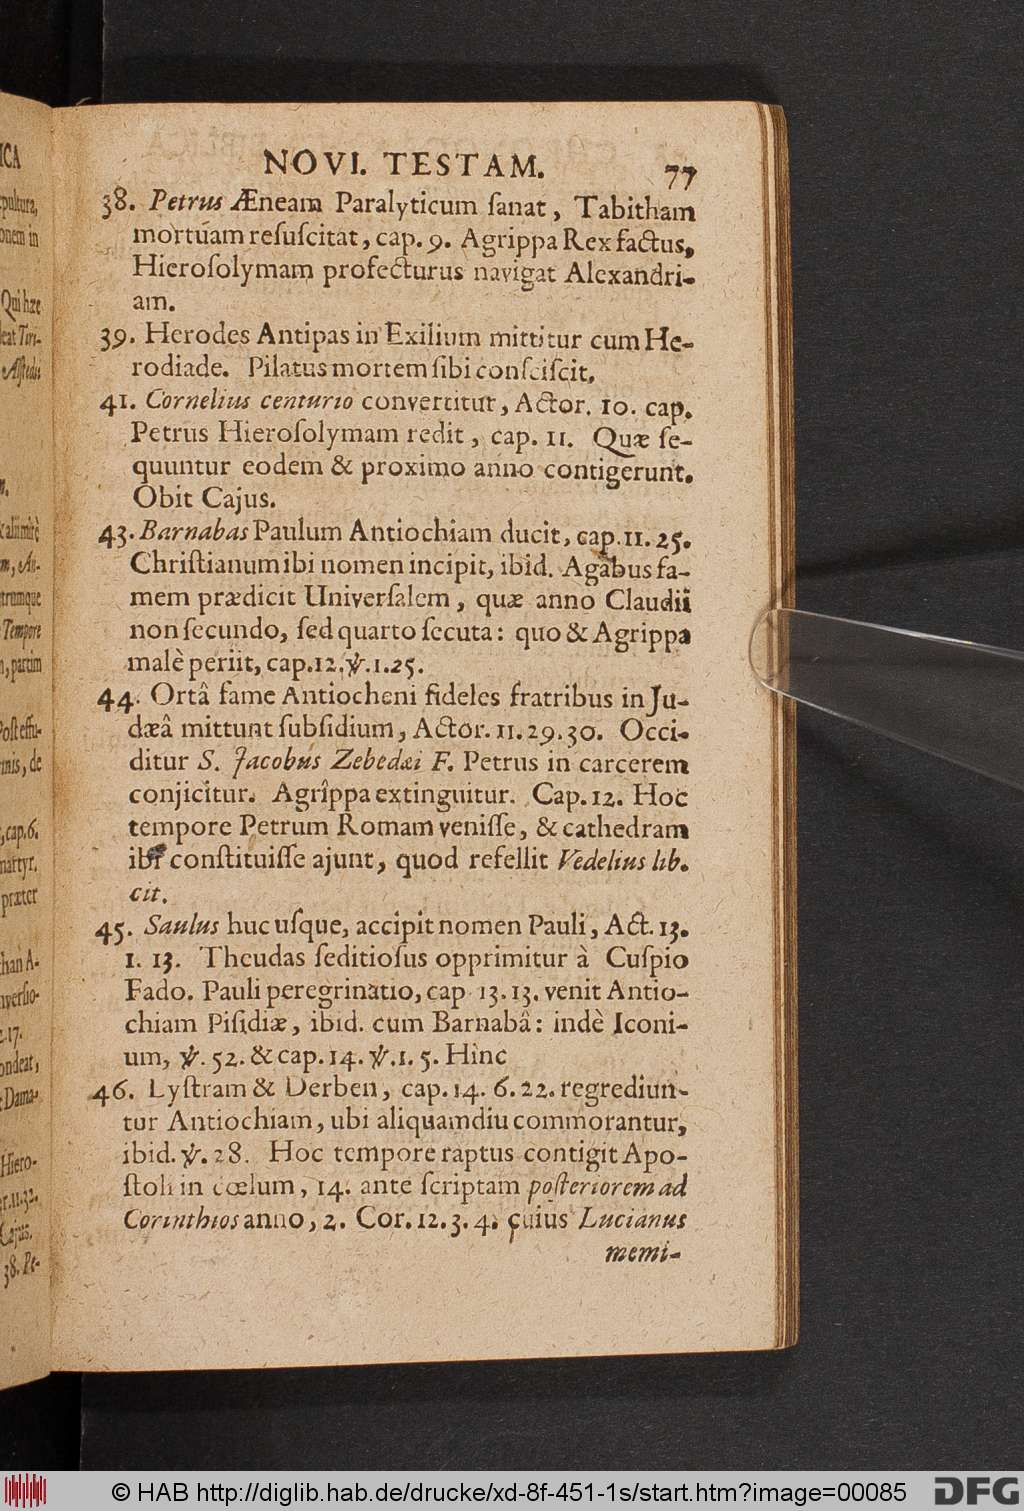 NOVI. TESTAM. 77
38. Petrus Æneam Paralyticum ſanat, Tabitham
mortuam reſuſcitat, cap. 9. Agrippa Rex factus,
Hieroſolymam profecturus navigat Alexandri-
am.
39. Herodes Antipas in Exilium mittitur cum He-
rodiade. Pilatus mortem ſibi conſciſcit.
41. Cornelius centurio convertitur, Actor. 10. cap.
Petrus Hieroſolymam redit, cap. 11. Quæ ſe-
quuntur eodem & proximo anno contigerunt.
Obit Cajus.
43. Barnabas Paulum Antiochiam ducit, cap. 11. 25.
Chriſtianum ibi nomen incipit, ibid. Agabus fa-
mem prædicit Univerſalem, quæ anno Claudii
non ſecundo, ſed quarto ſecuta: quo & Agrippa
malè periit, cap. 12. ℣. 1. 25.
44. Ortâ fame Antiocheni fideles fratribus in Ju-
dæâ mittunt ſubſidium, Actor. 11. 29. 30. Occi-
ditur S. Jacobus Zebedæi F. Petrus in carcerem
conjicitur. Agrippa extinguitur. Cap. 12. Hoc
tempore Petrum Romam veniſſe, & cathedram
ibi conſtituiſſe ajunt, quod refellit Vedelius lib.
cit.
45. Saulus huc uſque, accipit nomen Pauli, Act. 13.
1. 13. Theudas ſeditioſus opprimitur à Cuſpio
Fado. Pauli peregrinatio, cap 13. 13. venit Antio-
chiam Piſidiæ, ibid. cum Barnabâ: indè Iconi-
um, ℣. 52. & cap. 14. ℣. 1. 5. Hinc
46. Lyſtram & Derben, cap. 14. 6. 22. regrediun-
tur Antiochiam, ubi aliquamdiu commorantur,
ibid. ℣. 28. Hoc tempore raptus contigit Apo-
ſtoli in cœlum, 14. ante ſcriptam poſteriorem ad
Corinthios anno, 2. Cor. 12. 3. 4. cuius Lucianus
memi-
© HAB http://diglib.hab.de/drucke/xd-8f-451-1s/start.htm?image=00085
DFG